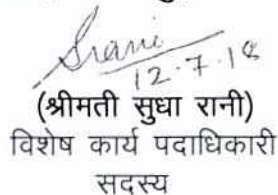 Srani
12.7.18
(श्रीमती सुधा रानी)
विशेष कार्य पदाधिकारी
सदस्य